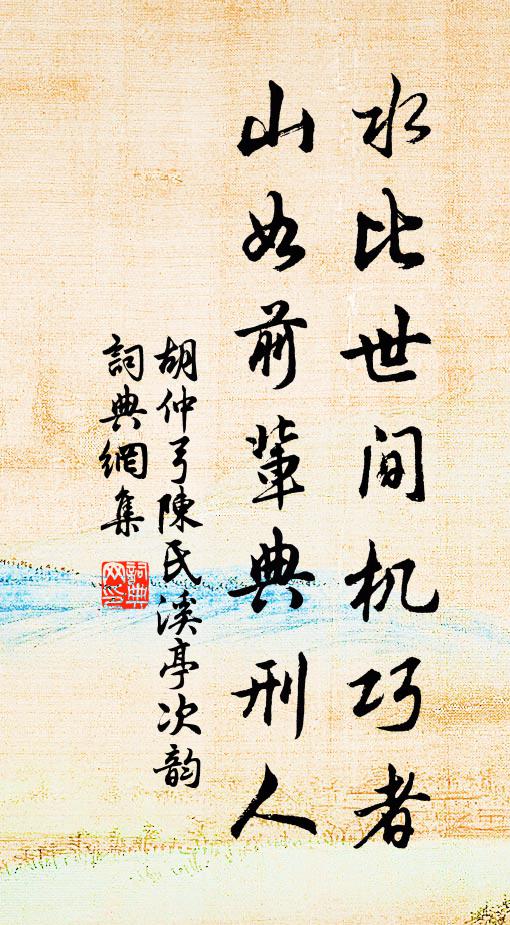 水比世间机巧者
山如前輩典刑人
胡仲弓陳氏溪亭次韵
詞典網集
詞典
网印